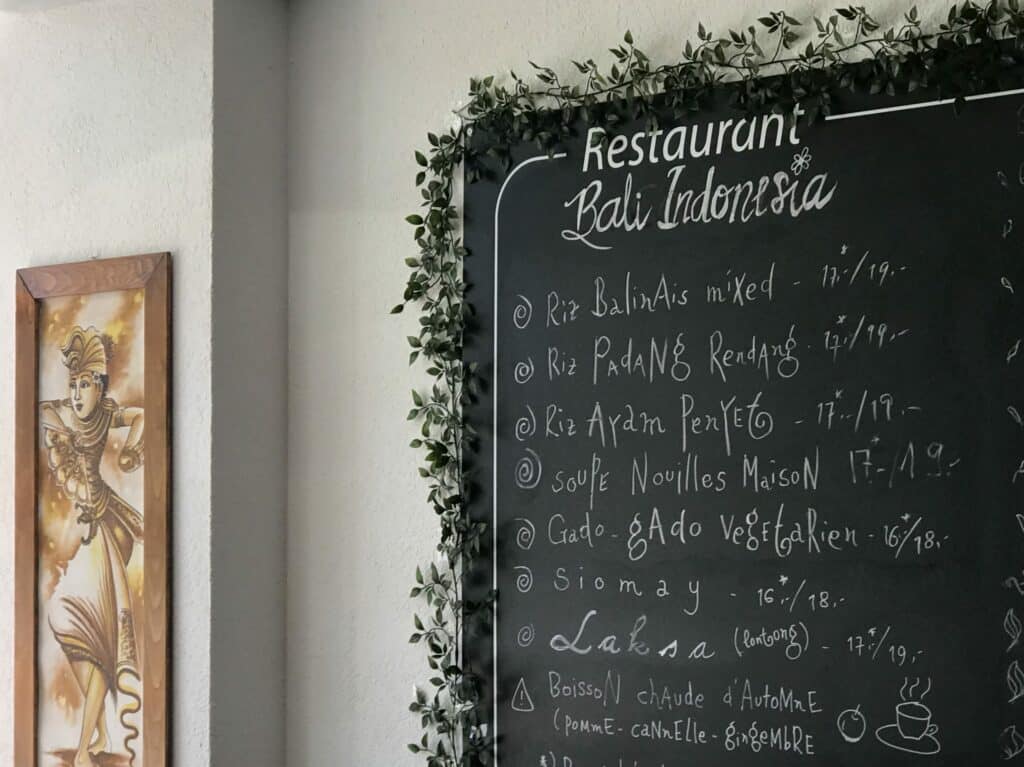 Restaurant
Bali Indonesia
Riz Balinais mixed - 17.-*/19.-
Riz Padang Rendang - 17.-*/19.-
Riz Ayam Penyet - 17.-*/19.-
Soupe Nouilles Maison 17.-*/19.-
Gado-gado vegetarien - 16.-*/18.-
Siomay - 16.-*/18.-
Laksa (lontong) - 17.-*/19.-
Boisson chaude d'Automne
(pomme-cannelle-gingembre